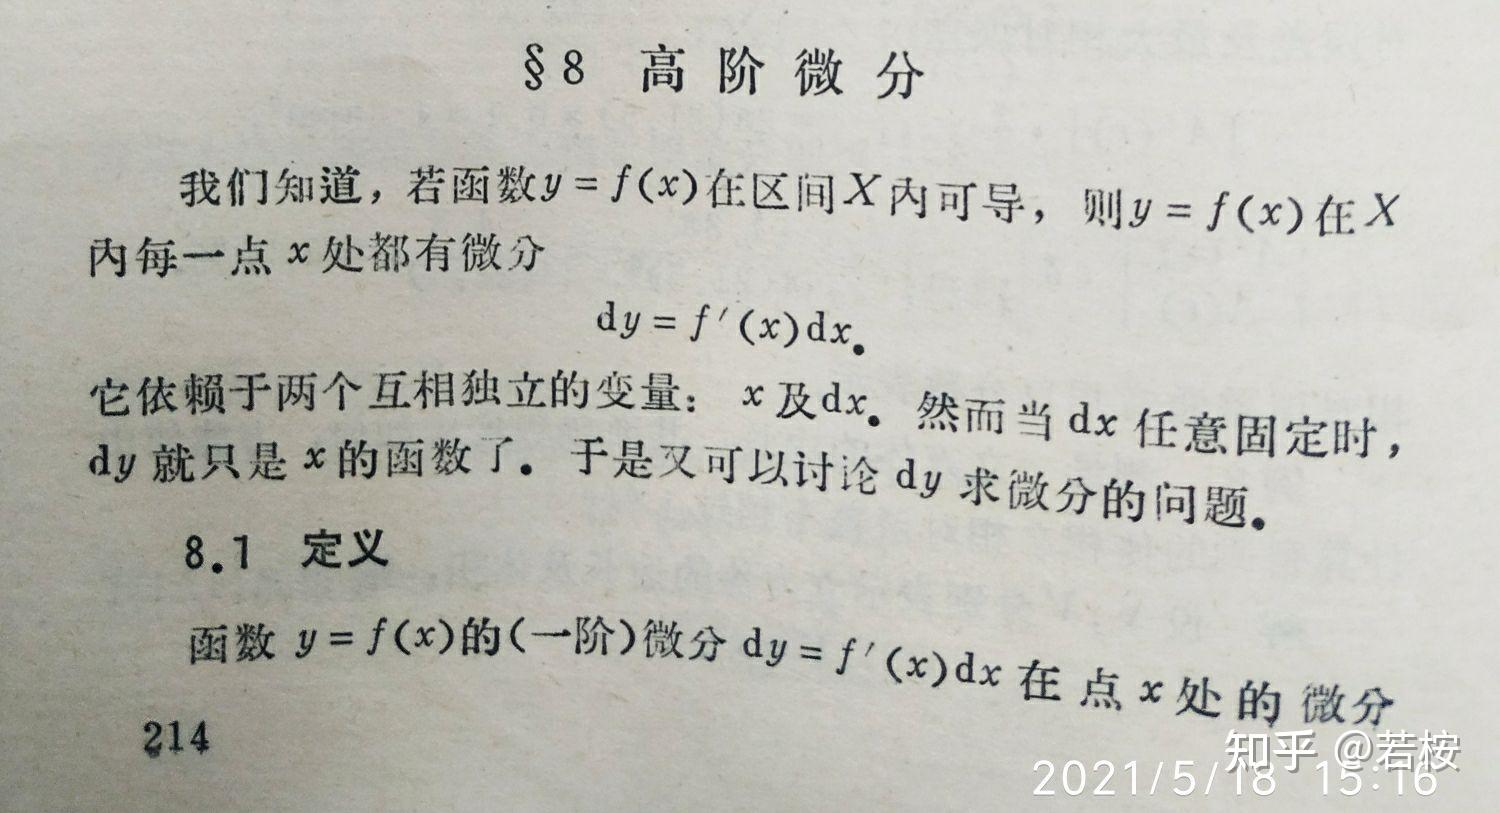 §8 高阶微分
我们知道，若函数y = f(x)在区间X内可导，则y = f(x)在X
内每一点 x 处都有微分
dy = f′(x)dx.
它依赖于两个互相独立的变量：x及dx. 然而当 dx 任意固定时，
dy 就只是 x 的函数了. 于是又可以讨论 dy 求微分的问题.
8.1 定义
函数 y = f(x)的(一阶)微分 dy = f′(x)dx 在点 x 处的微分
214
知乎 @若桉
2021/5/18 15:16